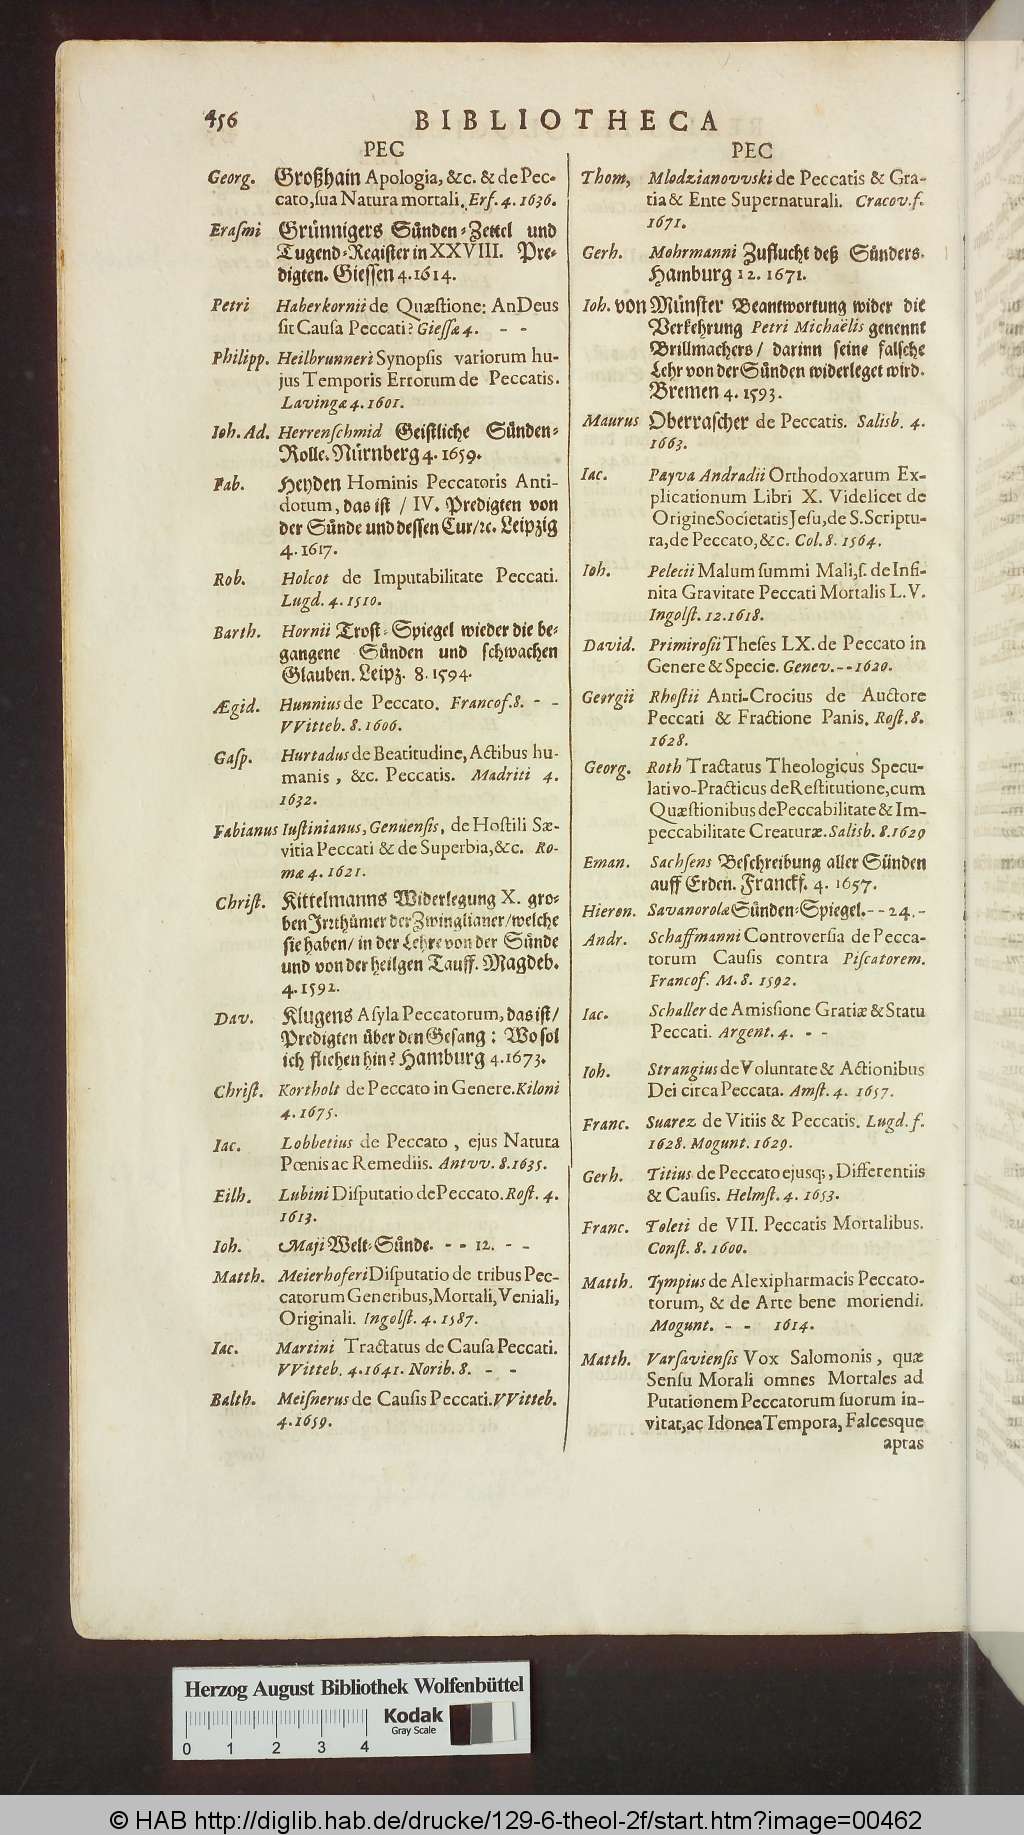 456 BIBLIOTHECA
PEC
Georg. Großhain Apologia, &c. & de Pec-
cato, ſua Natura mortali. Erf. 4. 1636.
Eraſmi Grünnigers Sünden-Zettel und
Tugend-Regiſter in XXVIII. Pre-
digten. Gieſſen 4. 1614.
Petri Haberkornii de Quæſtione: An Deus
ſit Cauſa Peccati? Gieſſæ 4. - -
Philipp. Heilbrunneri Synopſis variorum hu-
jus Temporis Errorum de Peccatis.
Lavingæ 4. 1601.
Ioh. Ad. Herrenſchmid Geiſtliche Sünden-
Rolle. Nürnberg 4. 1659.
Fab. Heyden Hominis Peccatoris Anti-
dotum, das iſt / IV. Predigten von
der Sünde und deſſen Cur/ꝛc. Leipzig
4. 1617.
Rob. Holcot de Imputabilitate Peccati.
Lugd. 4. 1510.
Barth. Hornii Troſt-Spiegel wieder die be-
gangene Sünden und ſchwachen
Glauben. Leipz. 8. 1594.
Ægid. Hunnius de Peccato. Francof. 8. - -
VVitteb. 8. 1606.
Gaſp. Hurtadus de Beatitudine, Actibus hu-
manis, &c. Peccatis. Madriti 4.
1632.
Fabianus Iuſtinianus, Genuenſis, de Hoſtili Sæ-
vitia Peccati & de Superbia, &c. Ro-
mæ 4. 1621.
Chriſt. Kittelmanns Widerlegung X. gro-
ben Jrꝛthümer der Zwinglianer/welche
ſie haben/ in der Lehre von der Sünde
und von der heilgen Tauff. Magdeb.
4. 1592.
Dav. Klugens Aſyla Peccatorum, das iſt/
Predigten über den Geſang: Wo ſol
ich fliehen hin? Hamburg 4. 1673.
Chriſt. Kortholt de Peccato in Genere. Kiloni
4. 1675.
Iac. Lobbetius de Peccato, ejus Natura
Pœnis ac Remediis. Antvv. 8. 1635.
Eilh. Lubini Diſputatio de Peccato. Roſt. 4.
1613.
Ioh. Maji Welt-Sünde. - - 12. - -
Matth. Meierhoferi Diſputatio de tribus Pec-
catorum Generibus, Mortali, Veniali,
Originali. Ingolſt. 4. 1587.
Iac. Martini Tractatus de Cauſa Peccati.
VVitteb. 4. 1641. Norib. 8. - -
Balth. Meiſnerus de Cauſis Peccati. VVitteb.
4. 1659.
PEC
Thom, Mlodzianovvski de Peccatis & Gra-
tia & Ente Supernaturali. Cracov. f.
1671.
Gerh. Mohrmanni Zuflucht deß Sünders.
Hamburg 12. 1671.
Ioh. von Münſter Beantwortung wider die
Verkehrung Petri Michaëlis genennt
Brillmachers/ darinn ſeine falſche
Lehr von der Sünden widerleget wird.
Bremen 4. 1593.
Maurus Oberraſcher de Peccatis. Salisb. 4.
1663.
Iac. Payva Andradii Orthodoxarum Ex-
plicationum Libri X. Videlicet de
Origine Societatis Jeſu, de S. Scriptu-
ra, de Peccato, &c. Col. 8. 1564.
Ioh. Pelecii Malum ſummi Mali, ſ. de Infi-
nita Gravitate Peccati Mortalis L. V.
Ingolſt. 12. 1618.
David. Primiroſii Theſes LX. de Peccato in
Genere & Specie. Genev. - - 1620.
Georgii Rhoſtii Anti-Crocius de Auctore
Peccati & Fractione Panis. Roſt. 8.
1628.
Georg. Roth Tractatus Theologicus Specu-
lativo-Practicus de Reſtitutione, cum
Quæſtionibus de Peccabilitate & Im-
peccabilitate Creaturæ. Salisb. 8. 1629
Eman. Sachſens Beſchreibung aller Sünden
auff Erden. Franckf. 4. 1657.
Hieron. Savanorolæ Sünden-Spiegel. - - 24. -
Andr. Schaffmanni Controverſia de Pecca-
torum Cauſis contra Piſcatorem.
Francof. M. 8. 1592.
Iac. Schaller de Amiſſione Gratiæ & Statu
Peccati. Argent. 4. - -
Ioh. Strangius de Voluntate & Actionibus
Dei circa Peccata. Amſt. 4. 1657.
Franc. Suarez de Vitiis & Peccatis. Lugd. f.
1628. Mogunt. 1629.
Gerh. Titius de Peccato ejusq;, Differentiis
& Cauſis. Helmſt. 4. 1653.
Franc. Toleti de VII. Peccatis Mortalibus.
Conſt. 8. 1600.
Matth. Tympius de Alexipharmacis Peccato-
torum, & de Arte bene moriendi.
Mogunt. - - 1614.
Matth. Varſavienſis Vox Salomonis, quæ
Senſu Morali omnes Mortales ad
Putationem Peccatorum ſuorum in-
vitat, ac Idonea Tempora, Falcesque
aptas
Herzog August Bibliothek Wolfenbüttel
Kodak
Gray Scale
0 1 2 3 4
© HAB http://diglib.hab.de/drucke/129-6-theol-2f/start.htm?image=00462